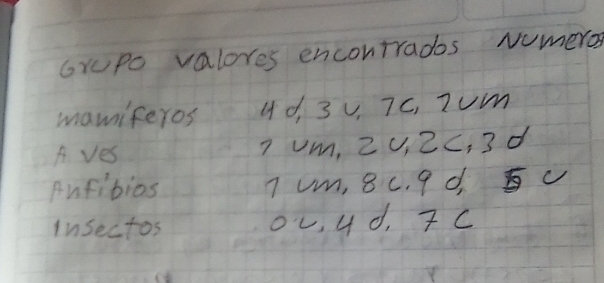 Grupo valores encontrados Numeros
mamíferos 4 d, 3 u, 1c, 1um
Aves 1 um, 2 u, 2c, 3 d
Anfibios 1 um, 8 c. 9 d, 5 u
Insectos 0 u, 4 d. 7 c